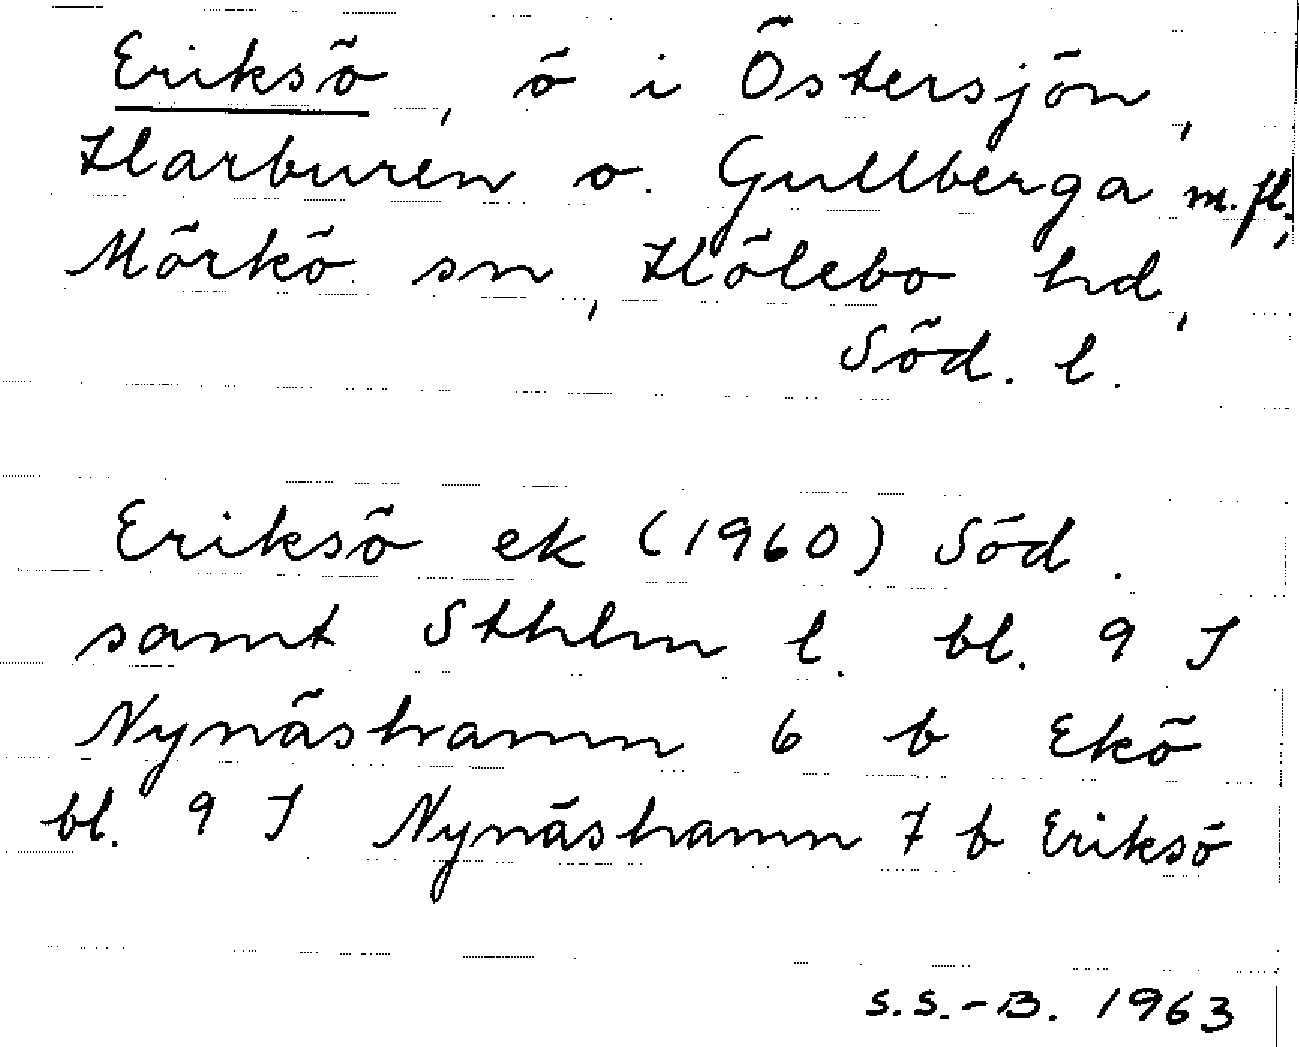 Eriksö, ö i Östersjön,
Harburen o. Gullberga m.fl.,
Mörkö sn, Hölebo hd,
Söd. l.
Eriksö ek (1960) Söd.
samt Sthlm l. bl. 9 I
Nynäshamn 6 b Ekö
bl. 9 I Nynäshamn 7 b Eriksö
S.S.-B. 1963